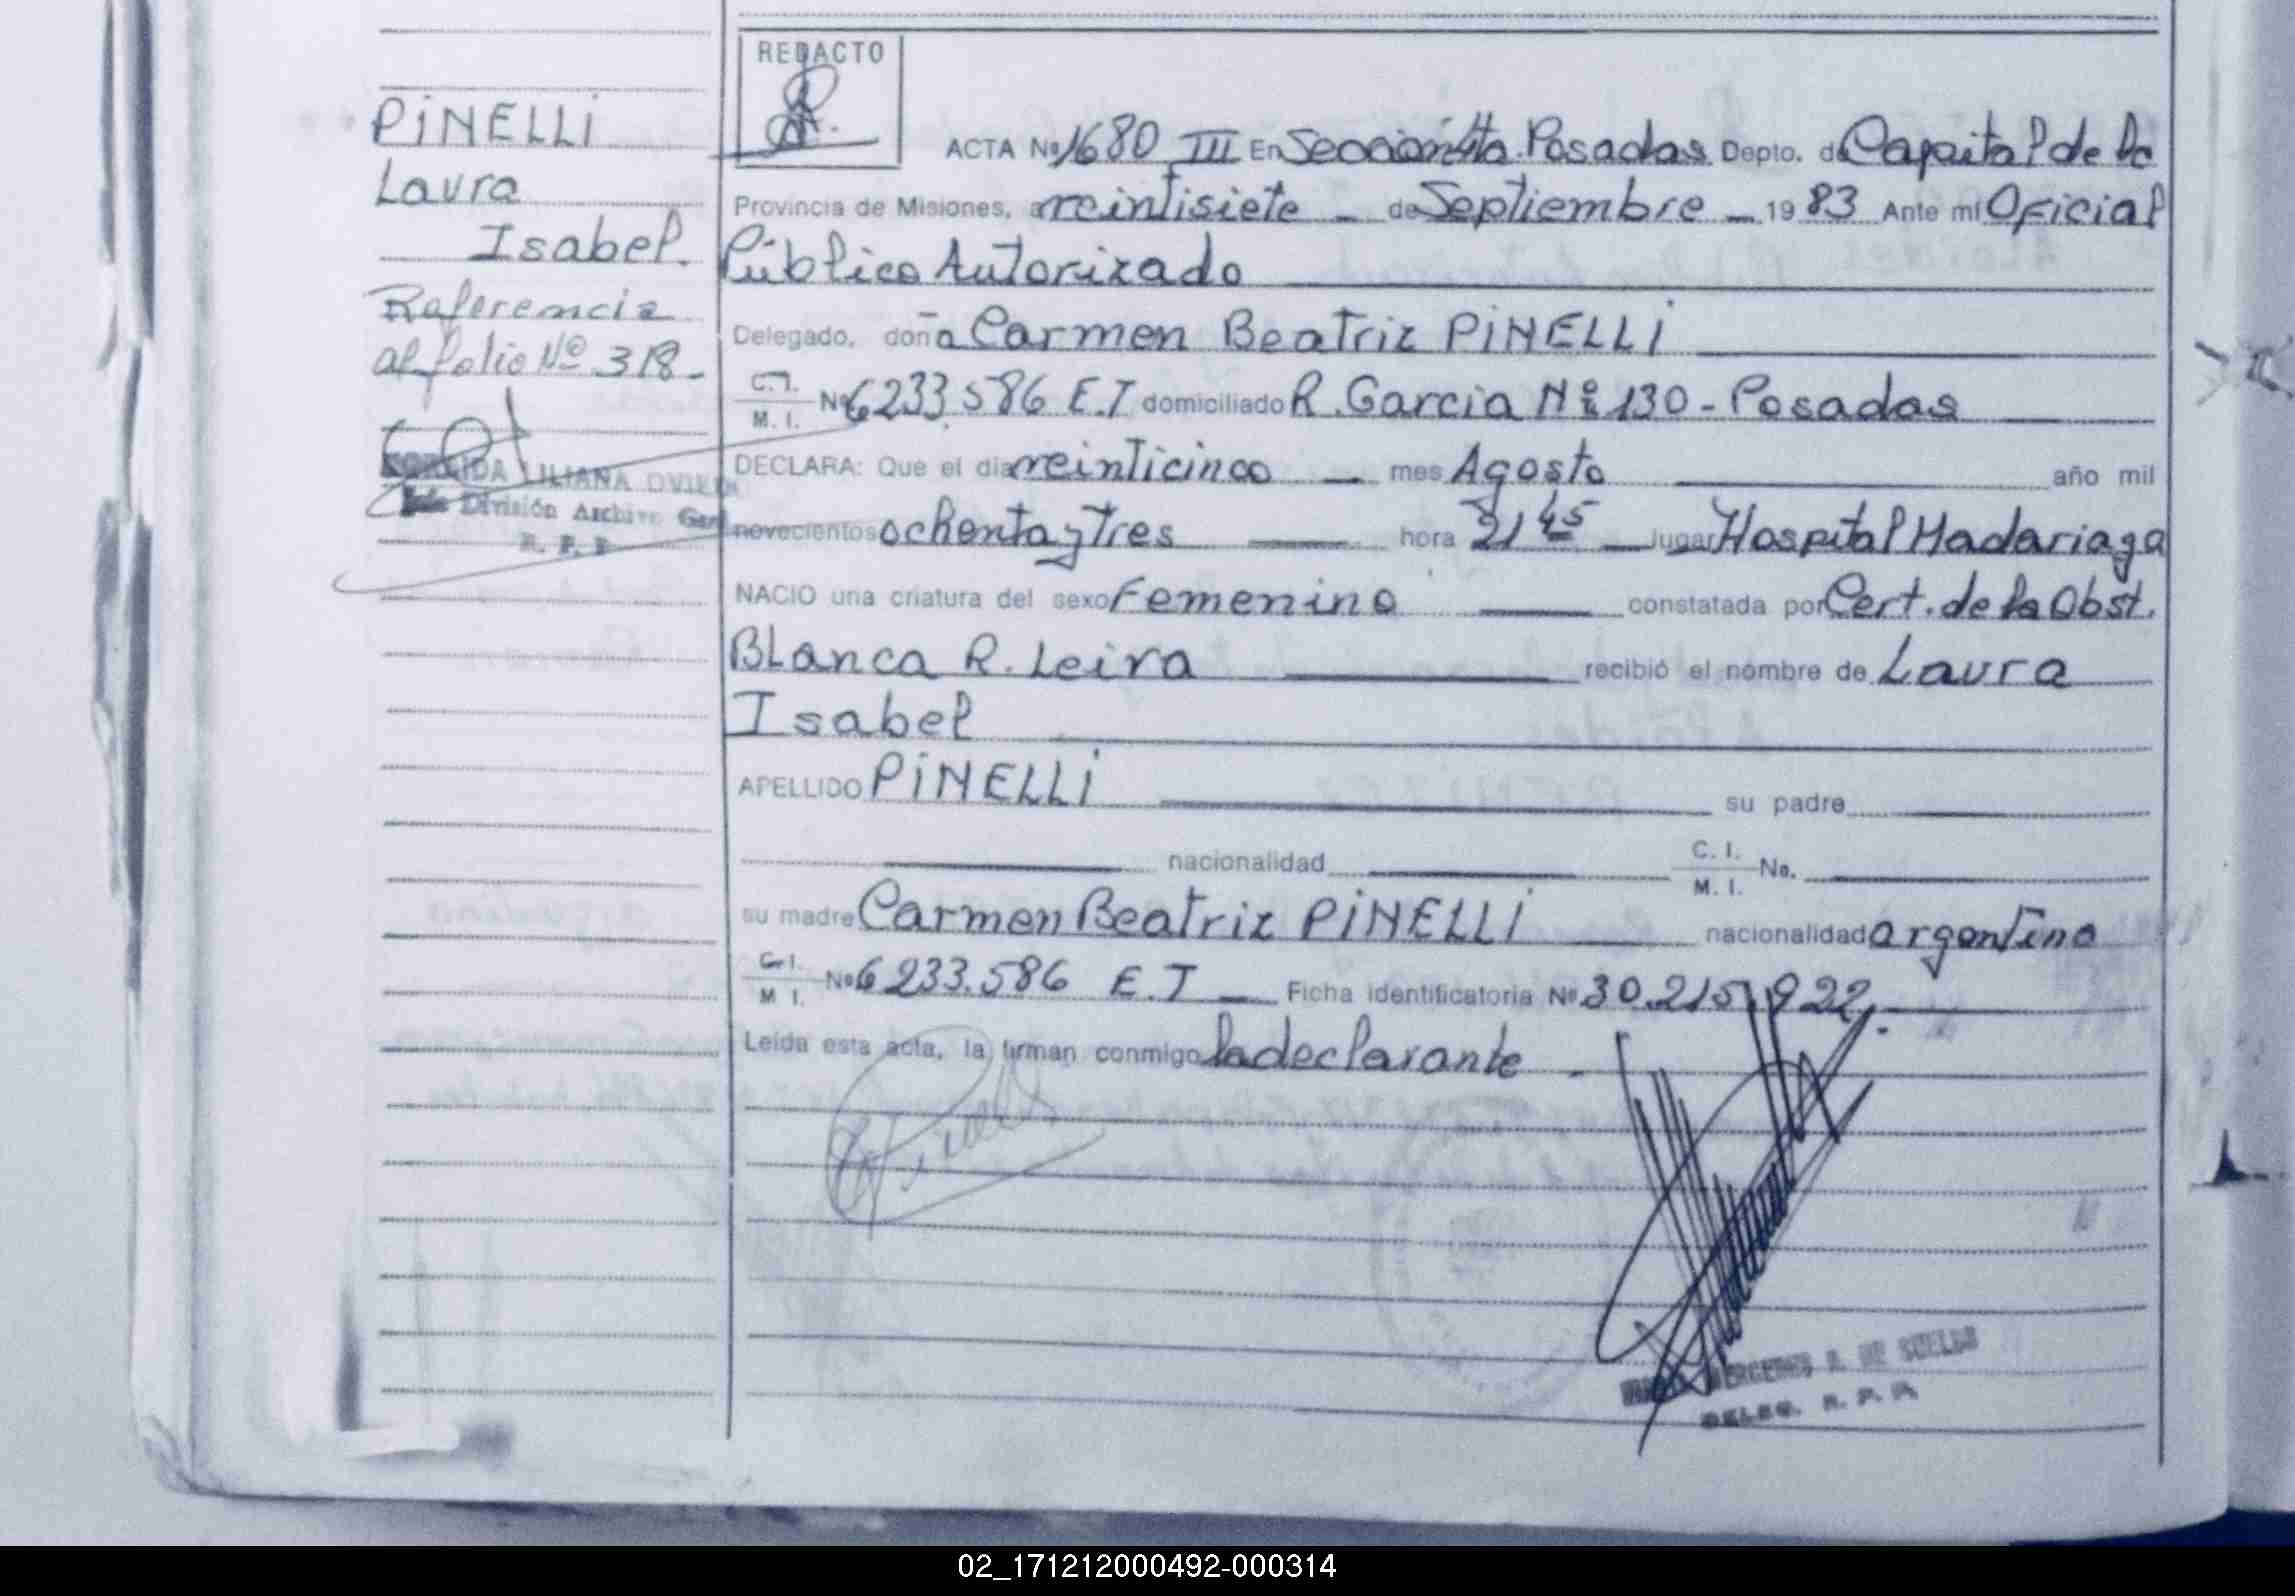 PINELLI
Laura
Isabel.
Referencia
al folio Nº 318-
LILIANA OVIEDO
División Archivo Gral
R. P. P
REDACTO
ACTA Nº 1680 III En Sección 4ta. Posadas Depto. de Capital de la
Provincia de Misiones, a veintisiete - de Septiembre - 19 83 Ante mí Oficial
Público Autorizado
Delegado, doña Carmen Beatriz PINELLI
C.I. M. I. Nº 6233.586 E.T domiciliado R. Garcia Nº 130 - Posadas
DECLARA: Que el día veinticinco - mes Agosto año mil
novecientos ochenta y Tres hora 21 45 lugar Hospital Madariaga
NACIO una criatura del sexo Femenino constatada por Cert. de la Obst.
Blanca R. Leiva recibió el nombre de Laura
Isabel
APELLIDO PINELLI su padre
nacionalidad C. I. M. I. No.
su madre Carmen Beatriz PINELLI nacionalidad argentina
C.I. M I. Nº 6233.586 E.T - Ficha identificatoria Nº 30.215.922.
Leída esta acta, la firman conmigo la declarante
MERCEDES A. DE
DELEG. R. P. P.
02_171212000492-000314